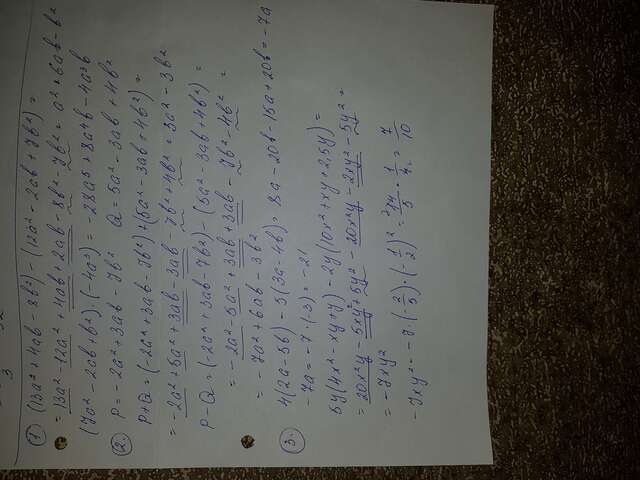 1. (13a² + 4ab - 8b²) - (12a² - 2ab + 7b²) =
= 13a² - 12a² + 4ab + 2ab - 8b² - 7b² = a² + 6ab - b²
(7a² - 2ab + b²) · (-4a³) = -28a⁵ + 8a⁴b - 4a³b
2. P = -2a² + 3ab - 7b² Q = 5a² - 3ab + 4b²
P + Q = (-2a² + 3ab - 7b²) + (5a² - 3ab + 4b²) =
= -2a² + 5a² + 3ab - 3ab - 7b² + 4b² = 3a² - 3b²
P - Q = (-2a² + 3ab - 7b²) - (5a² - 3ab + 4b²) =
= -2a² - 5a² + 3ab + 3ab - 7b² - 4b² =
= -7a² + 6ab - 3b²
3. 4(2a - 5b) - 5(3a - 4b) = 8a - 20b - 15a + 20b = -7a
-7a = -7 · (-3) = -21
5y(4x² - xy + y) - 2y(10x² + xy + 2,5y) =
= 20x²y - 5xy² + 5y² - 20x²y - 2xy² - 5y² =
= -7xy²
-7xy² = -7 · (-2/5) · (-1/2)² = 14/5 · 1/4 = 7/10